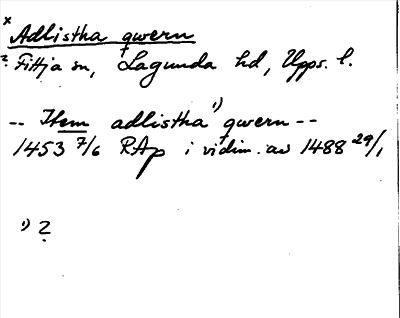 x
Adlistha qwern
? Fittja sn, Lagunda hd, Upps. l.
-- Item adlistha 1) qwern --
1453 7/6 RAp i vidim. av 1488 29/1
1) ?